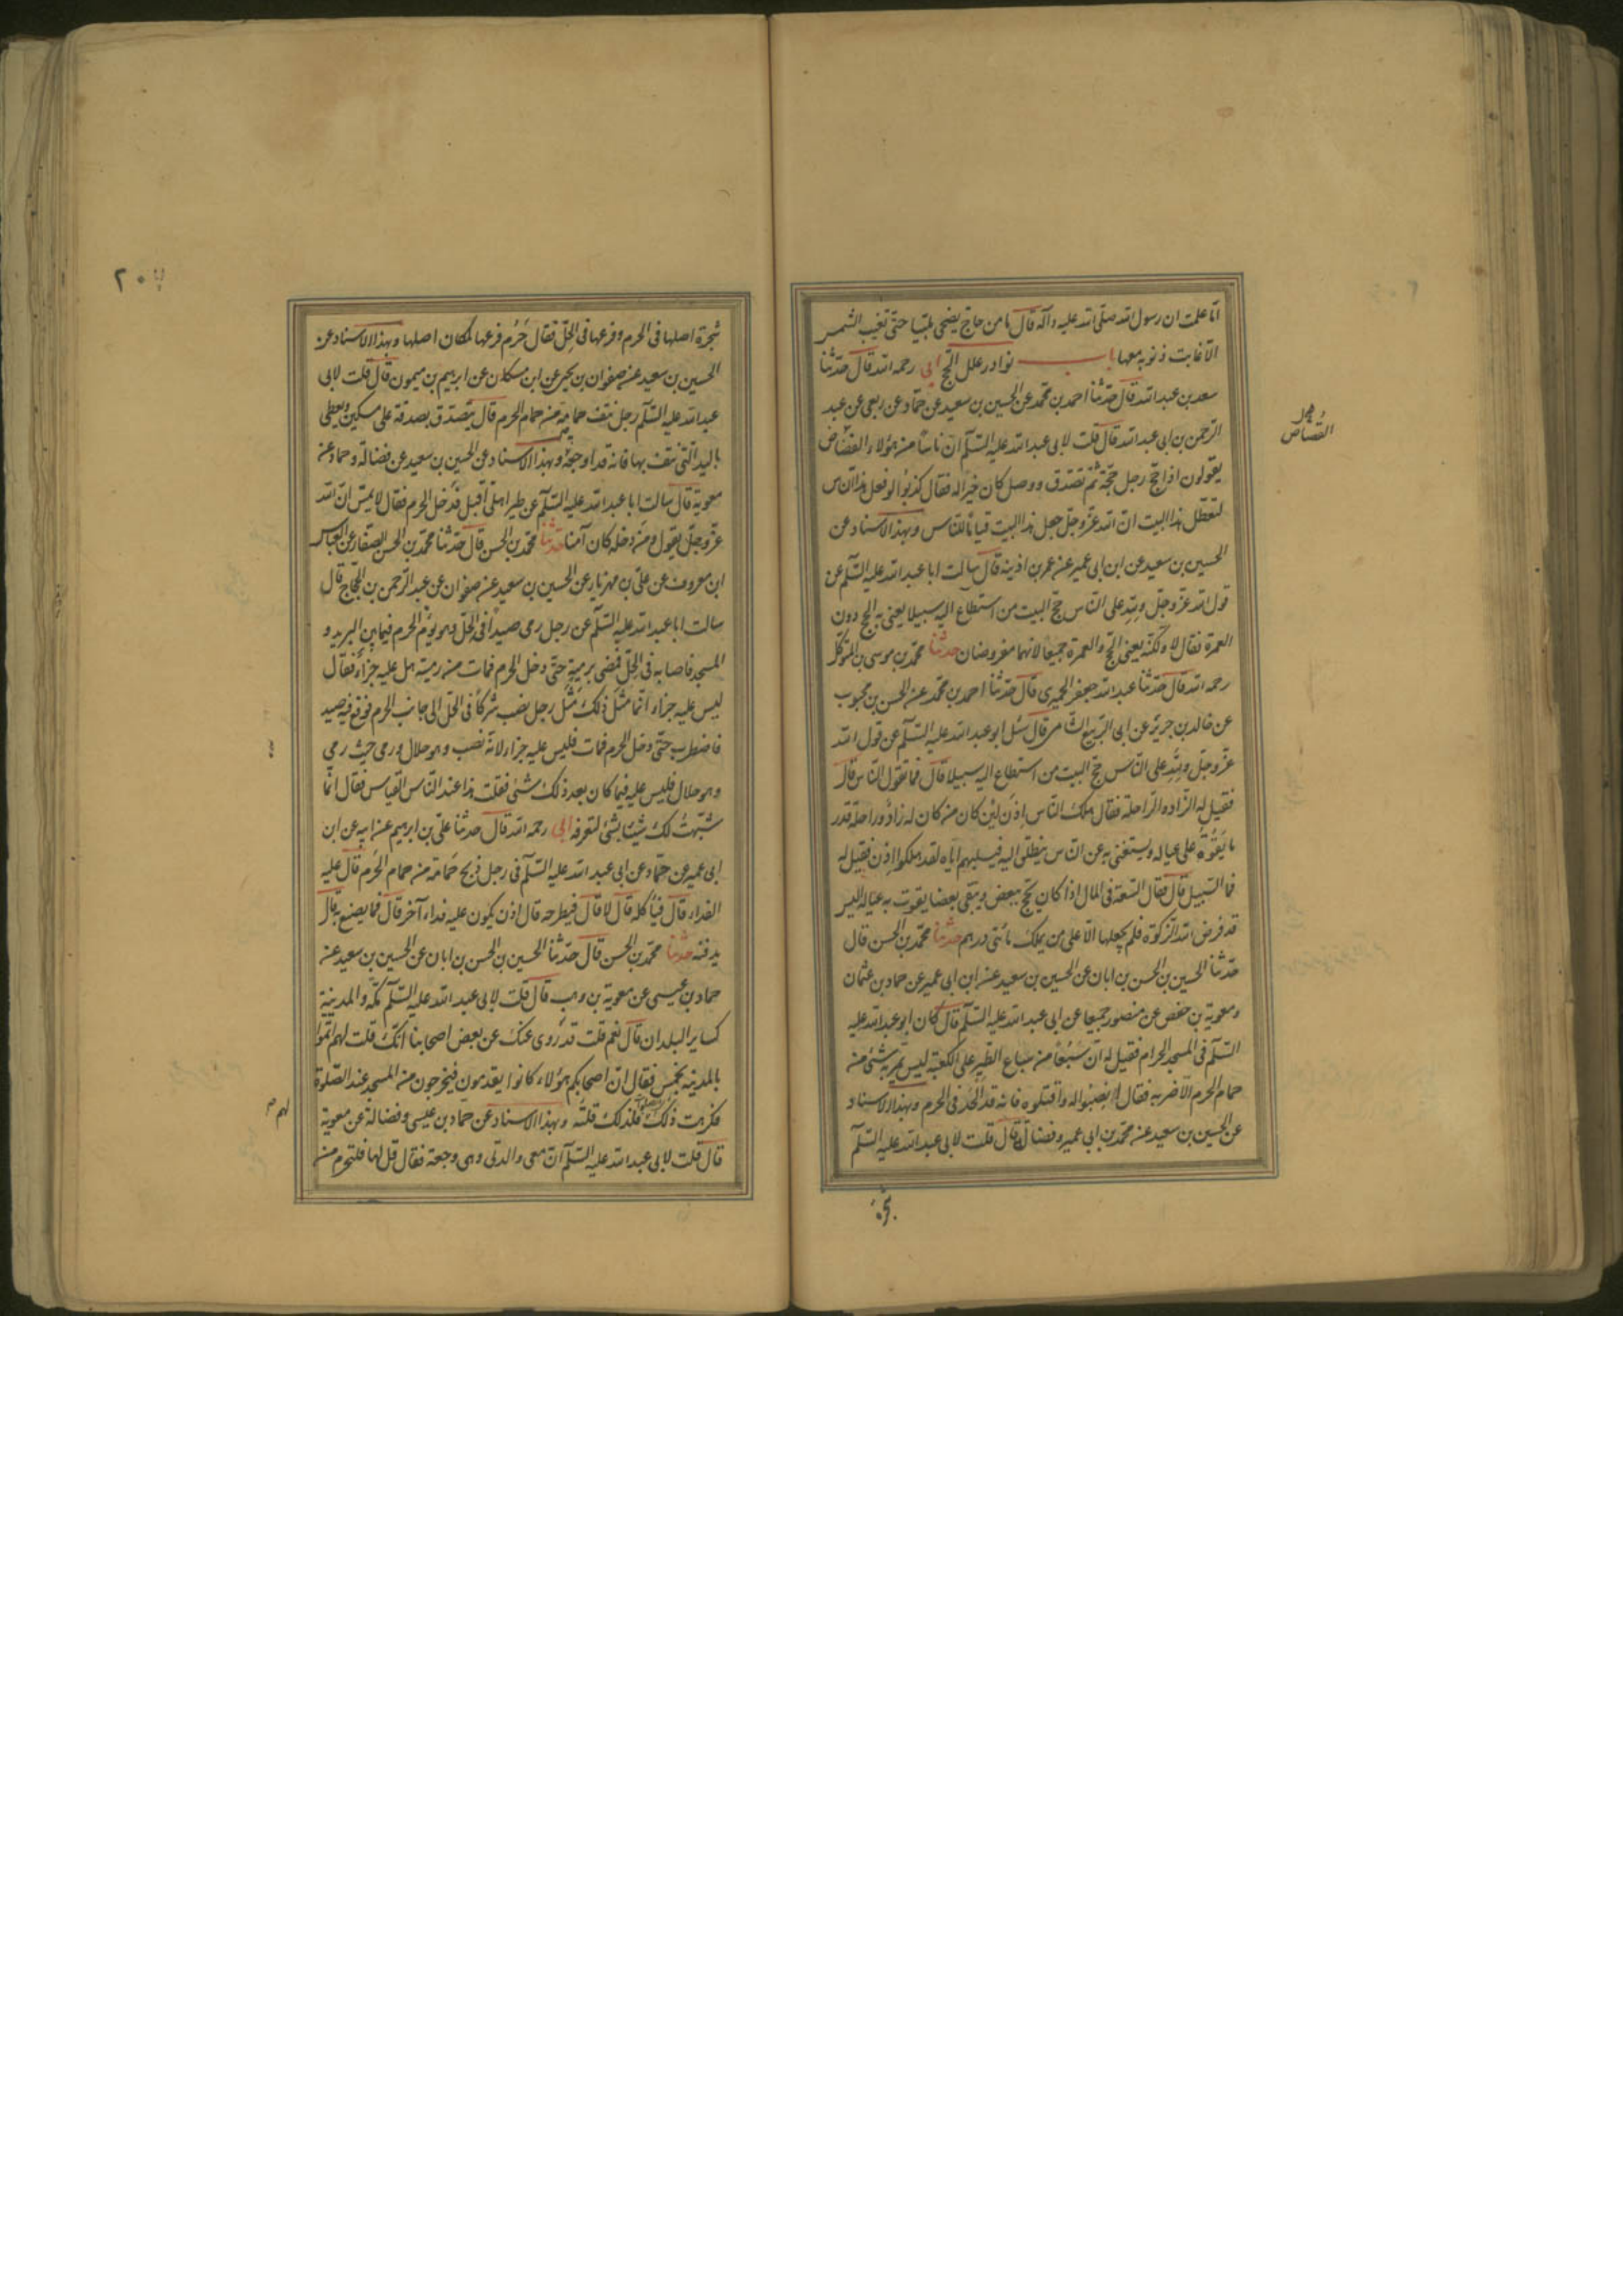 اما علمت ان رسول الله صلّى الله عليه وآله قال ما من حاجّ يضحى ملبّيا حتّى تغيب الشمس
الّا غابت ذنوبه معها باب نوادر علل الحج ابى رحمه الله قال حدّثنا
سعد بن عبد الله قال حدّثنا احمد بن محمّد عن الحسين بن سعيد عن حمّاد عن ربعى عن عبد
الرّحمن بن ابى عبد الله قال قلت لابى عبد الله عليه السّلم انّ ناسًا من هؤلاء القصّاص
يقولون اذا حجّ رجل حجّة ثمّ تصدّق ووصل كان خيرًا له فقال كذبوا لو فعل هذا النّاس
لتعطّل هذا البيت انّ الله عزّ وجلّ جعل هذا البيت قيامًا للنّاس وبهذا الاسناد عن
الحسين بن سعيد عن ابن ابى عمير عن عمر بن اذينه قال سالت ابا عبد الله عليه السّلم عن
قول الله عزّ وجلّ ولله على النّاس حجّ البيت من استطاع اليه سبيلا يعنى به الحج دون
العمرة فقال لا ولكنّه يعنى الحجّ والعمرة جميعًا لانهما مفروضان حدثنا محمّد بن موسى بن المتوكّل
رحمه الله قال حدّثنا عبد الله جعفر الحميرى قال حدّثنا احمد بن محمّد عن الحسن بن محبوب
عن خالد بن جرير عن ابى الرّبيع الشامى قال سئل ابو عبد الله عليه السّلم عن قول الله
عزّ وجلّ ولله على النّاس حجّ البيت من استطاع اليه سبيلا قال فما تقول النّاس قال
فقيل له الزّاد والرّاحلة فقال هلك النّاس اذن لئن كان من كان له زاد وراحلة قدر
ما يقوته على عياله ويستغنى به عن النّاس ينطلق اليه فيسلبهم اياه لقد هلكوا اذن فقيل له
فما السّبيل قال فقال السّعة فى المال اذا كان يحجّ ببعض ويبقى بعضا يقوت به عياله اليس
قد فرض الله الزّكوة فلم يجعلها الّا على من يملك مائتى درهم حدثنا محمّد بن الحسن قال
حدّثنا الحسين بن الحسن بن ابان عن الحسين بن سعيد عن ابن ابى عمير عن حماد بن عثمان
ومعوية بن حفص عن منصور جميعا عن ابى عبد الله عليه السّلم قال كان ابو عبد الله عليه
السّلم فى المسجد الحرام فقيل له انّ سبُعًا من سباع الطّير على الكعبة ليس يمرّ به شئ من
حمام الحرم الّا ضربه فقال انصبوا له واقتلوه فانه قد الحد فى الحرم وبهذا الاسناد
عن الحسين بن سعيد عن محمّد بن ابى عمير وفضالة قال قلت لابى عبد الله عليه السّلم
شجرة
القصاص
٢٠٧
شجرة اصلها فى الحرم وفرعها فى الحِلّ فقال حَرُم فرعها لمكان اصلها وبهذا الاسناد عن
الحسين بن سعيد عن صفوان بن يحيى عن ابن مسكان عن ابرهيم بن ميمون قال قلت لابى
عبد الله عليه السّلم رجل نتف حمامة من حمام الحرم قال يتصدّق بصدقة على مسكين ويعطى
باليد الّتى نتف بها فانه قد اوجعه وبهذا الاسناد عن الحسين بن سعيد عن فضالة وحماد عن
معوية قال سالت ابا عبد الله عليه السّلم عن طير اهلى اقبل فدخل الحرم فقال لا يمسّ انّ الله
عزّ وجلّ يقول ومن دخله كان آمنا حدثنا محمّد بن الحسن قال حدّثنا محمّد بن الحسن الصفّار عن العباس
ابن معروف عن علىّ بن مهزيار عن الحسين بن سعيد عن صفوان عن عبد الرّحمن بن الحجّاج قال
سالت ابا عبد الله عليه السّلم عن رجل رمى صيدًا فى الحِلّ وهو يؤمّ الحرم فيما بين البريد و
المسجد فاصابه فى الحِلّ فمضى برميته حتّى دخل الحرم فمات من رميته هل عليه جزاء فقال
ليس عليه جزاء انّما مثل ذلك مثل رجل نصب شركًا فى الحِلّ الى جانب الحرم فوقع فيه صيد
فاضطرب حتّى دخل الحرم فمات فليس عليه جزاء لانّه نصب وهو حلال ورمى حيث رمى
وهو حلال فليس عليه فيما كان بعد ذلك شئ فقلت هذا عند النّاس القياس فقال انّما
شبّهتُ لك شيئا بشئ لتعرفه ابى رحمه الله قال حدثنا علىّ بن ابرهيم عن ابيه عن ابن
ابى عمير عن حمّاد عن ابى عبد الله عليه السّلم فى رجل ذبح حمامة من حمام الحرم قال عليه
الفداء قال فيأكله قال لا قال فيطرحه قال اذن يكون عليه فداء آخر قال فما يصنع به قال
يدفنه حدثنا محمّد بن الحسن قال حدّثنا الحسين بن الحسن بن ابان عن الحسين بن سعيد عن
حماد بن عيسى عن معوية بن وهب قال قلت لابى عبد الله عليه السّلم مكّة والمدينة
كساير البلدان قال نعم قلت قد روى عنك عن بعض اصحابنا انّك قلت لهم اتمّوا
بالمدينة بخمس فقال انّ اصحابكم هؤلاء كانوا يقدمون فيخرجون من المسجد عند الصّلوة
فكرهت ذلك فلذلك قلته وبهذا الاسناد عن حماد بن عيسى وفضالة عن معوية
قال قلت لابى عبد الله عليه السّلم انّ معى والدتى وهى وجعة فقال قل لها فلتحرم من
لهم